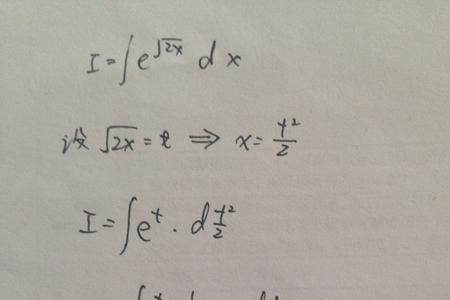 I=∫e^√2x dx
设 √2x = t ⇒ x = t²/2
I=∫e^t · d t²/2